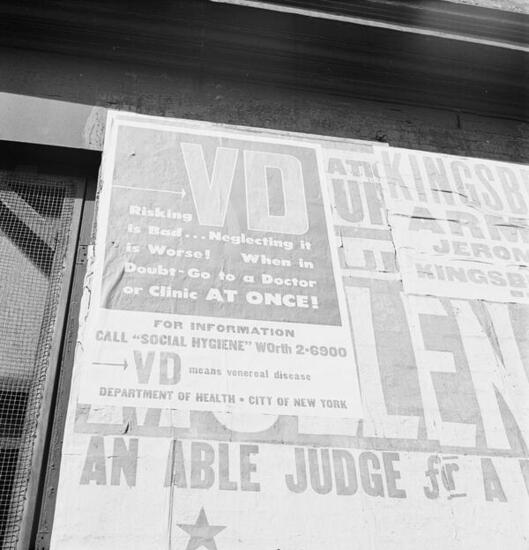 VD
Risking
is Bad... Neglecting it
is Worse! When in
Doubt-Go to a Doctor
or Clinic AT ONCE!
FOR INFORMATION
CALL "SOCIAL HYGIENE" WOrth 2-6900
VD means venereal disease
DEPARTMENT OF HEALTH • CITY OF NEW YORK
KINGSB
ARM
JEROM
KINGSB
ATIO
UP
LEN
AN ABLE JUDGE for A